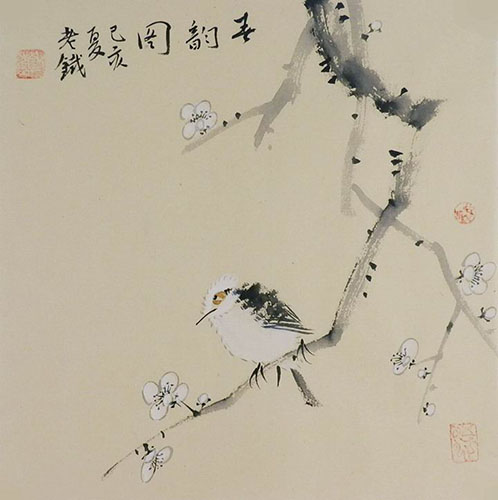 春韵图
己亥
夏
老鐵